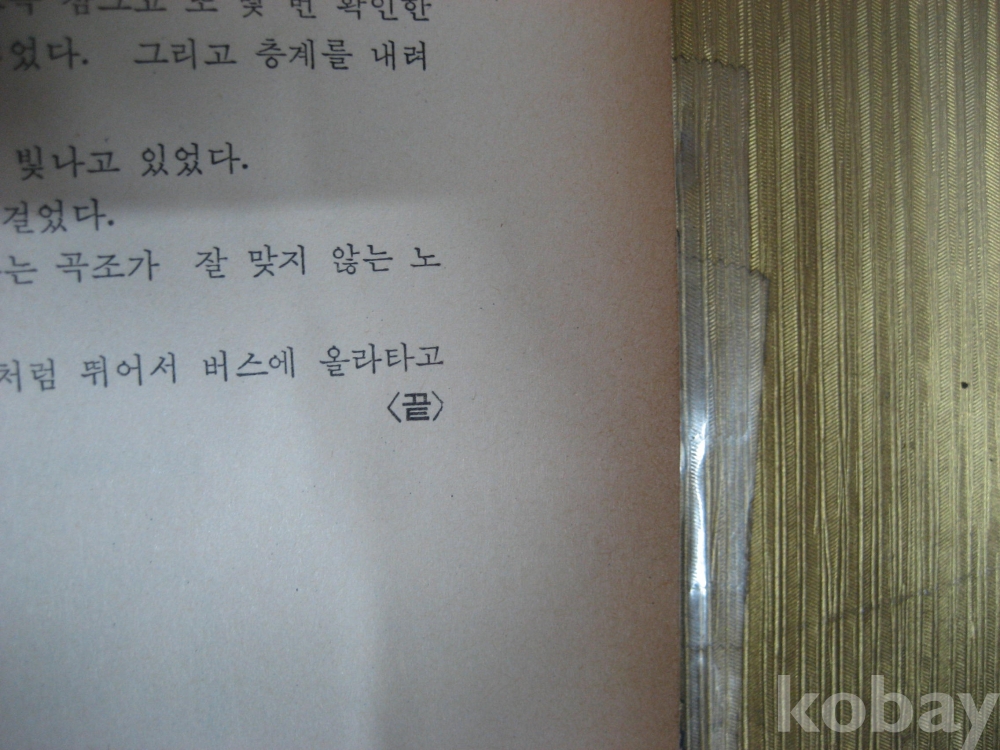 잠그고 또 몇 번 확인한
었다. 그리고 층계를 내려
빛나고 있었다.
걸었다.
는 곡조가 잘 맞지 않는 노
처럼 뛰어서 버스에 올라타고
〈끝〉
kobay